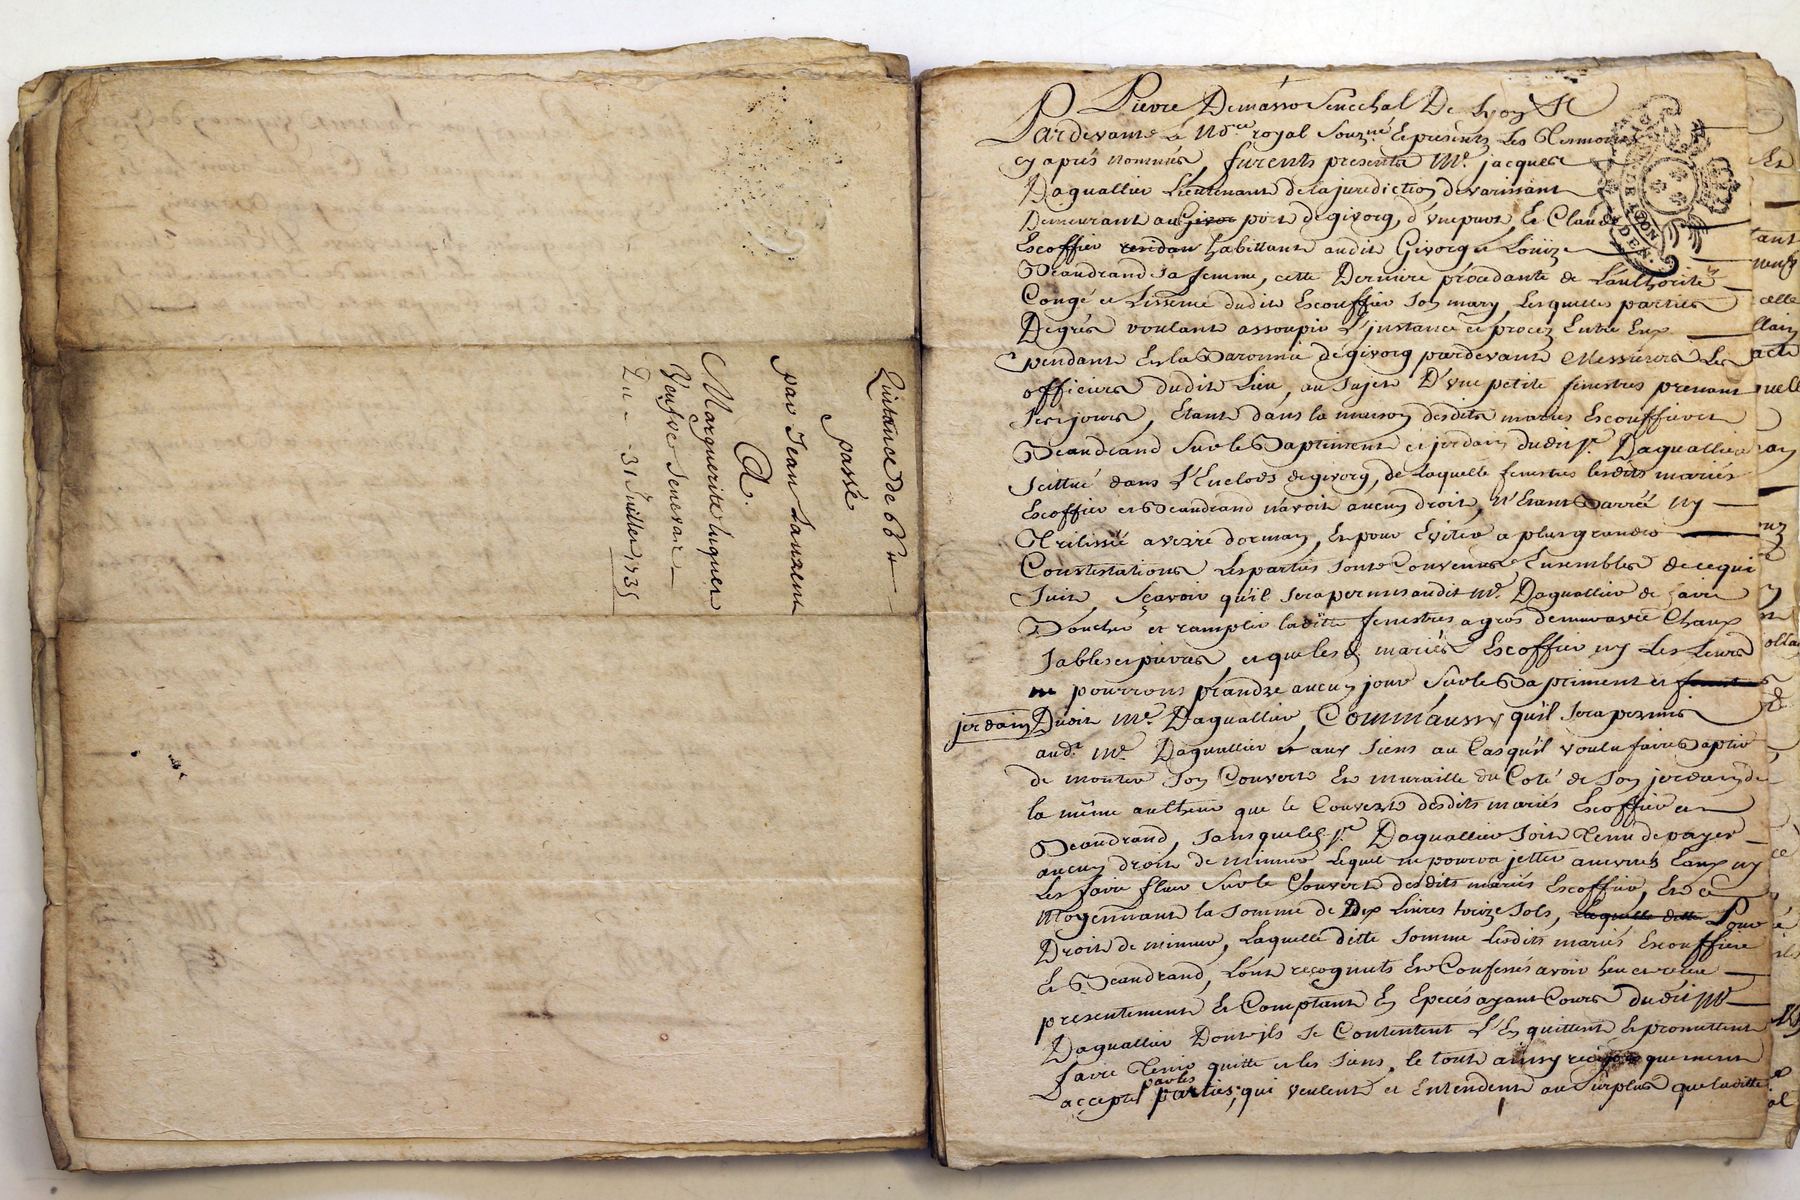 Quittance de 66 ₶
passé
par Jean Laurent
A.
Marguerite luquet
Veufve Senevaz
Du 31 Juillet 1735
Pierre Demasso Senechal De Lyon
Pardevant Le No.re royal Souz.né Et presents Les Temoins
cy aprés nommés, furents presents M.e jacques
Daquallier Lieutenant de la jurediction de varissant
Demeurant au Givor port de givorq, d'une part, Et Claude
Escoffier residan habittant audit Givorq et Louïze
Beaudrand sa femme, cette Derniere procedante de L'authorité
Congé et Lissence dudit Escouffier son mary, Lesquelles parties
De grés voulant assoupir L'jnstance et procez Entre Eux
pendante En la Baronnie de givorq pardevant Messieurs Les
officiers dudit Lieu, au sujet D'une petite fenestres prenant
ses jours, Etant dans la maison desdits mariés Escouffier et
Beaudrand sur le Baptiment et jerdain dudit S.r Daquallier
scittué dans L'Enclos de givorq, de Laquelle fenestres lesdits mariés
Escoffier et Beaudrand n'avoit aucun droit, N'Etant Barrée ny
Trilissée a verre dorman, Et pour Eviter a plus grandes
Constestations Les parties sont Convenues Ensembles de ce qui
suit, Sçavoir qu'il sera permis audit M.e Daquallier de faire
Boucher et ramplir laditte fenestres a gros de mur avec Chaux
sables et pierres, et que les d. mariés Escoffier ny Les Leurs
ne pourrons prandre aucun jour sur le Baptiment et
jerdain Dudit M.e Daquallier, Comm'aussy qu'il sera permis
aud.t M.e Daquallier et aux siens au Cas qu'il voulu faire Baptir
de monter son Couvert Et muraille du Coté de son jerdain de
la même autheur que le Couvert desdits mariés Escoffier et
Beaudrand, sans que led. S.r Daquallier soit Tenu de payer
aucun droit de mimur Lequel ne pourra jetter aucunes Eaux ny
Les faire fluer sur le Couvert desdits mariés Escoffier, Et ce
Moyennant la somme de Dix Livres treize sols, Laquelle ditte Pour
Droit de mimur, Laquelle ditte somme Lesdits mariés Escouffier
Et Beaudrand, L'ont reçognuts Et Confessés avoir heu et reçeu
presentement Et Comptant En Epecés ayant Cours dudit M.e
Daquallier Dont ils se Contentent L'En quittent Et promettent
faire Tenir quitte et les siens, le tout ainsy reciproquement
parles
accepté parties; qui veulent et Entendent au surplus que laditte
LYON
DEN.